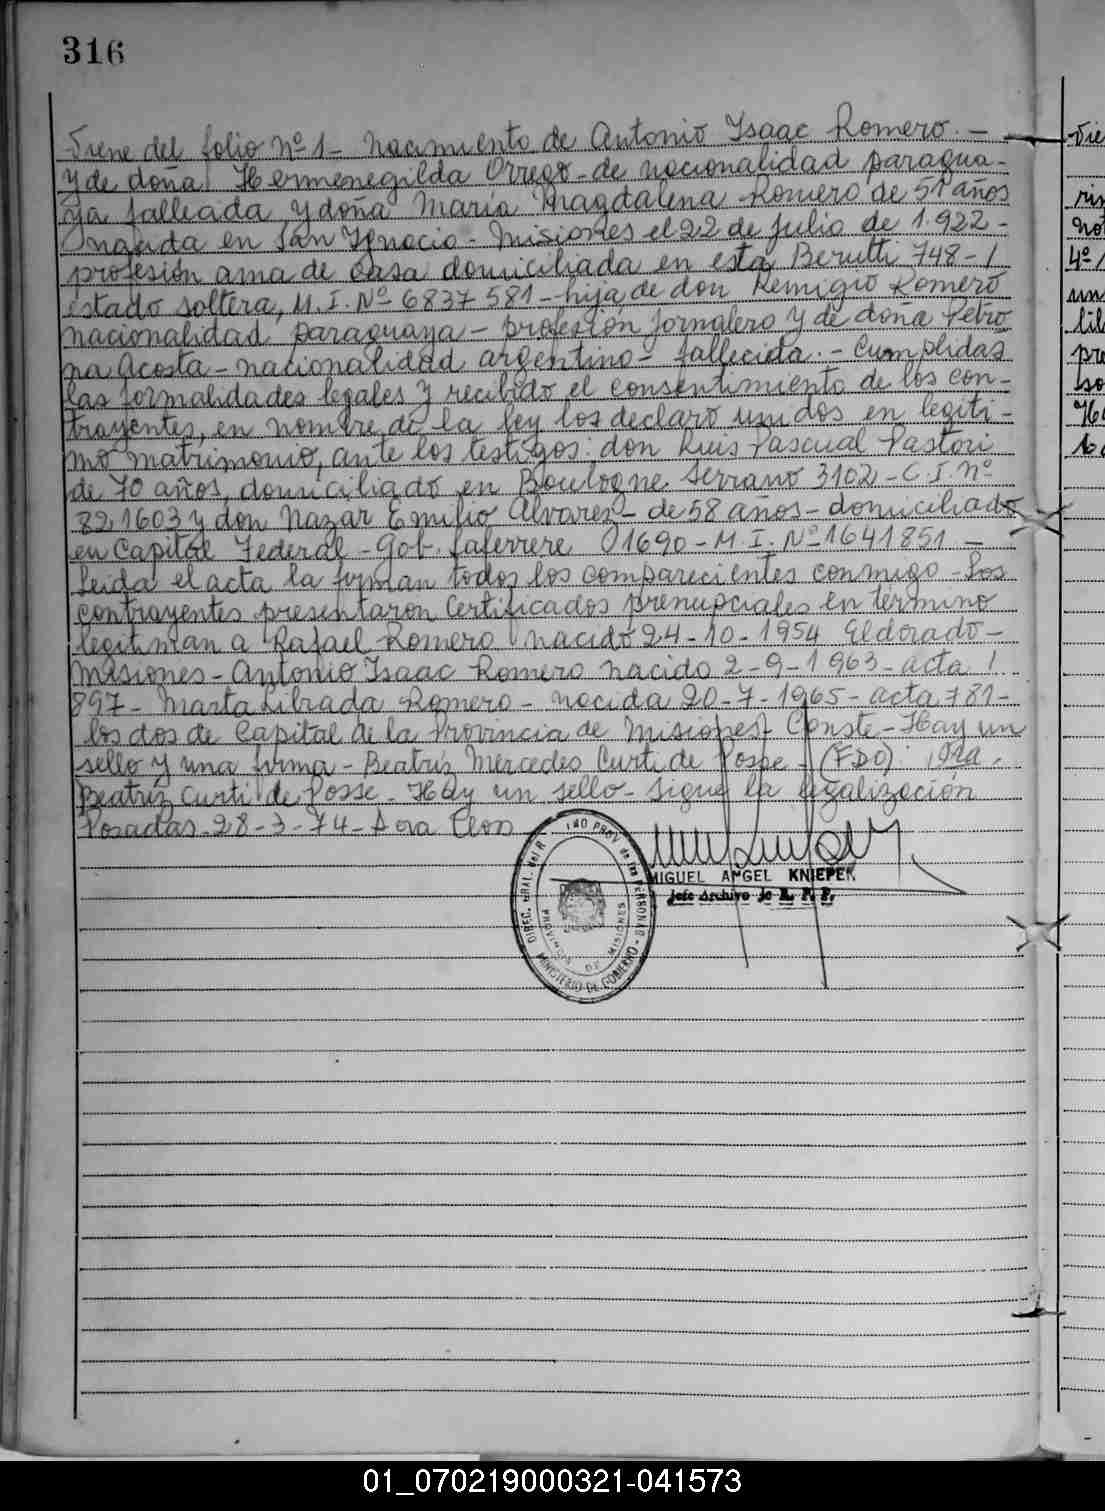 316
Viene del folio Nº 1- Nacimiento de Antonio Isaac Romero.-
y de doña Hermenegilda Orrego- de nacionalidad paragua-
ya fallecida y doña María Magdalena Romero de 51 años
nacida en San Ignacio- Misiones el 22 de julio de 1.922-
profesión ama de casa domiciliada en esta Berutti 748-/
estado soltera, M.I. Nº 6837581- hija de don Remigio Romero
nacionalidad paraguaya- profesión jornalero y de doña Petro
na Acosta- nacionalidad argentino- fallecida.- Cumplidas
las formalidades legales y recibido el consentimiento de los con-
trayentes, en nombre de la ley los declaro unidos en legíti-
mo matrimonio, ante los testigos: don Luis Pascual Pastori
de 70 años, domiciliado en Boulogne Serrano 3102- C.I. Nº
821603 y don Nazar Emilio Alvarez- de 58 años- domiciliado
en Capital Federal- Gob. Laferrere 1690- M.I. Nº 1641851-
Leida el acta la firman todos los comparecientes conmigo- Los
contrayentes presentaron Certificados prenupciales en termino
legitiman a Rafael Romero nacido 24-10-1954 Eldorado-
Misiones- Antonio Isaac Romero nacido 2-9-1963- acta /
897- Marta Librada Romero- nacida 20-7-1965- acta 781-
los dos de Capital de la Provincia de Misiones- Conste- Hay un
sello y una firma- Beatriz Mercedes Curti de Posse- (FDO):
Beatriz Curti de Posse- Hay un sello- Sigue la legalización
Posadas- 28-3-74-
MIGUEL ANGEL KNIEPER
Jefe Archivo de R. P. P.
DIREC. GRAL. del R. PROV de las PERSONAS
PROVINCIA DE MISIONES
MINISTERIO DE GOBIERNO
01_070219000321-041573